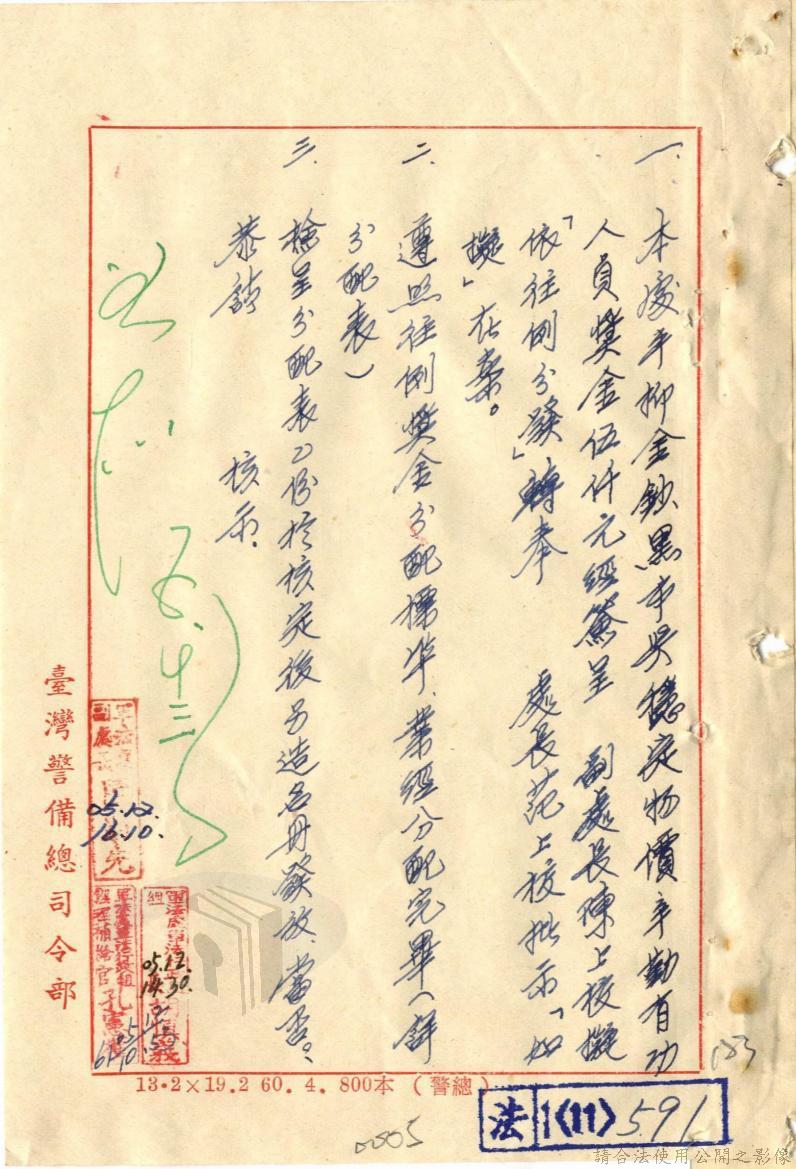 一、本處平抑金鈔黑市與穩定物價辛勤有功
人員獎金伍仟元經簽呈　副處長陳上校擬
「依往例分發」轉奉　處長范上校批示「如
擬」在案。
二、遵照往例獎金分配標準，業經分配完畢（詳
分配表）
三、檢呈分配表乙份於核定後另造名冊發放，當否。
恭請　核示。
五.十三
05.12.
16.10.
05.12.
14.30.
臺灣警備總司令部
13·2×19.2 60. 4. 800本 （警總）
法 1(11) 591
183
0005
請合法使用公開之影像